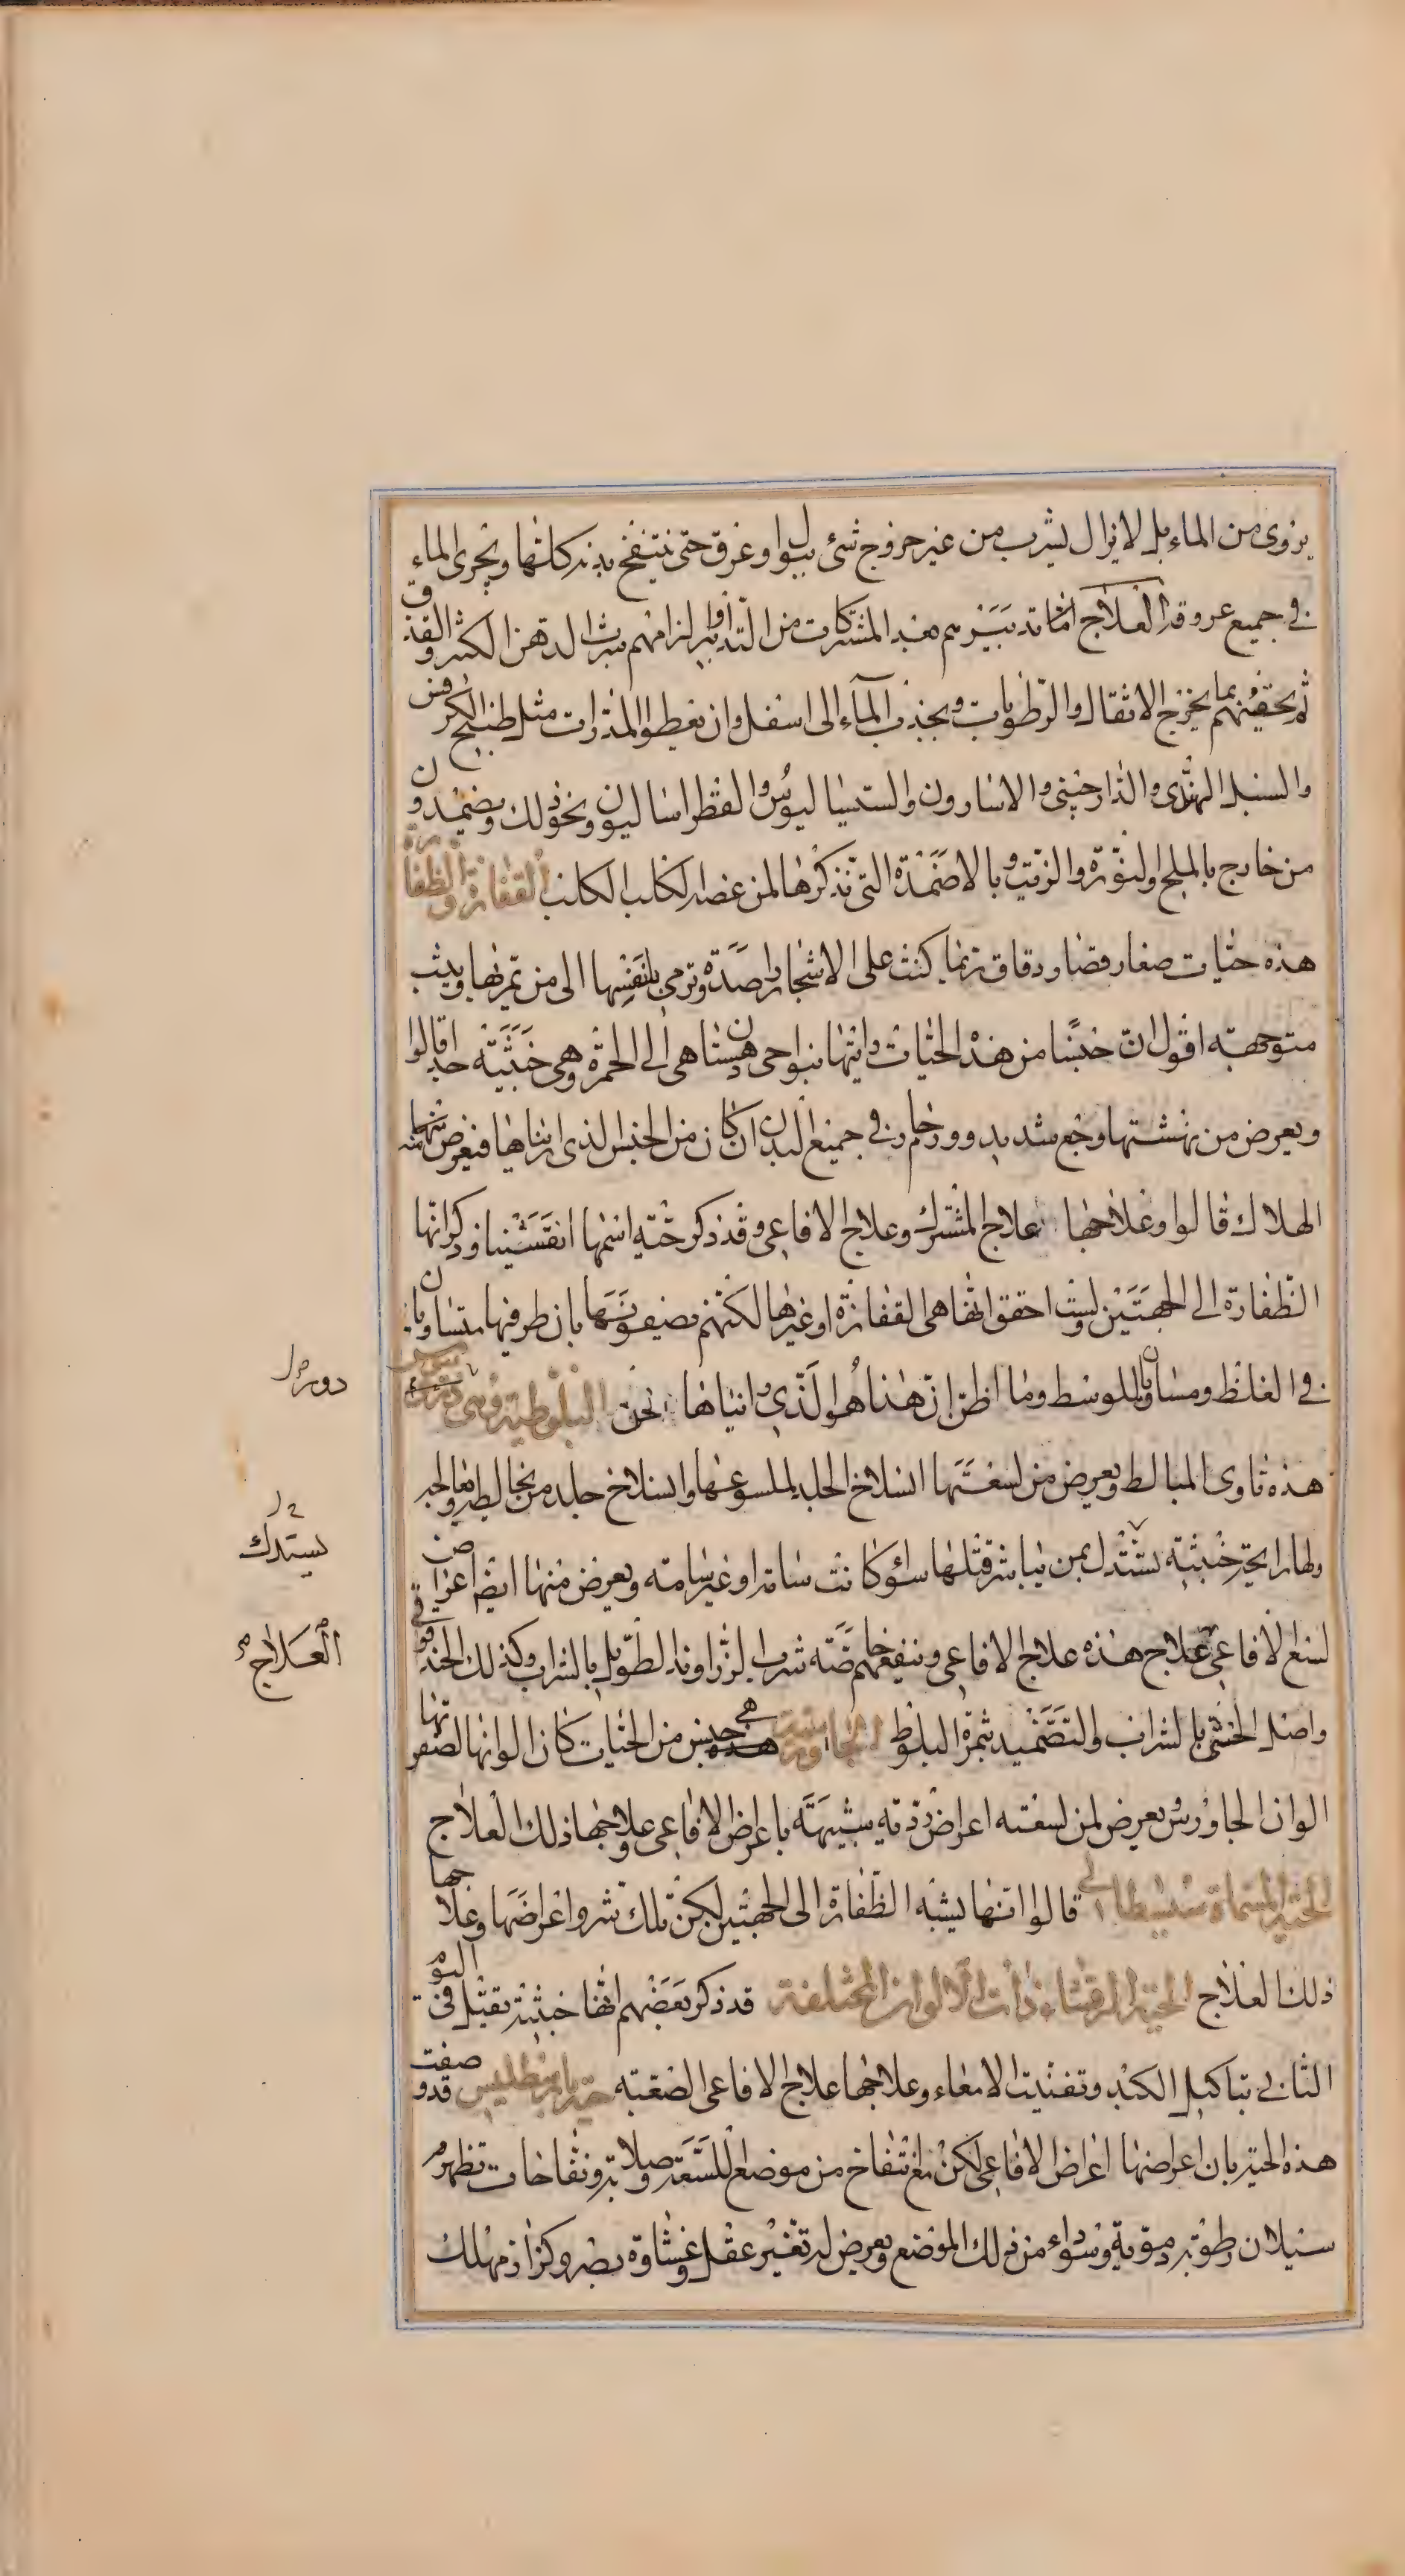 يروى من الماء بل لا يزال يشرب من غير خروج شئ ببول او عرق حتى ينتفخ بدنه كلها ويجرى الماء
فى جميع عروقه العلاج اما تدبيرهم بعد المشتركات من التدابير اوالزامهم شرب الدهن الكثير والقذف
ثم يحقنهم بما يخرج الاثقال والرطوبات ويجذب الماء الى اسفل وان يعطوا المدرات مثل طبيخ الكرفس
والسنبل الهندى والدارچينى والاسارون والسيساليوس والفطراساليون ونحو ذلك ويضمدون
من خارج بالملح والنورة والزيت وبالاضمدة التى نذكرها لمن عضه الكلب الكلب القفازة والطفارة
هذه حيات صغار قصار دقاق ربما كنت على الاشجار راصدة وترمى بنفسها الى من تمر بها ويثب
متوجهة اقول ان جنسا من هذه الحيات رايتها بنواحى دهستان هى الى الحمرة وهى خبيثة جدا قالوا
ويعرض من نهشتها وجع شديد وورم حار فى جميع البدن ان كان من الجنس الذى رايناها فيعرض منها
الهلاك قالوا وعلاجها علاج المشترك وعلاج الافاعى وقد ذكر حية اسمها انقسسينا وذكر انها
الطفارة الى الجهتين ولست احقق انها هى القفازة او غيرها لكنهم يضيفونها بان طرفيها متساويان
فى الغلظ ومساويان للوسط وما اظن ان هذا هو الذى رايناها نحن البلوطية وهى دروس
هذه تاوى المبالط ويعرض من لسعتها انسلاخ الجلد لملسوعها وانسلاخ جلد من يخالطه ويعالجه
ولها رايحة خبيثة تستدل بمن يباشر قتلها سواء كانت سامة او غير سامة ويعرض منها ايضا اعراض
لسع الافاعى علاج هذه علاج الافاعى وينفعهم خاصة شرب الزراوند الطويل بالشراب وكذلك الحندقوقى
واصل الخنثى بالشراب والتضميد بثمرة البلوط الجاورسية هى جنس من الحيات كان الوانها لصفرتها
الوان الجاورس يعرض لمن لسعته اعراض ردية شبيهة باعراض الافاعى وعلاجها ذلك العلاج
الحية المسماة سيسطالى قالوا انها يشبه الطفارة الى الجهتين لكن تلك شر واعراضها وعلاجها
ذلك العلاج الحية الرقشاء ذات الالوان المختلفة قد ذكر بعضهم انها خبيثة يقتل فى اليوم
الثانى بتاكيل الكبد وتفتيت الامعاء وعلاجها علاج الافاعى الصعبة حية بارسطليس قد وصفت
هذه الحية بان اعراضها اعراض الافاعى لكن مع انتفاخ من موضع اللسعة وصلابة ونفاخات تظهر
سيلان رطوبة دموية وسوداء من ذلك الموضع ويعرض له تغير عقل وغشاوة بصر وكزاز مهلك
دورس
يستدل
العلاج